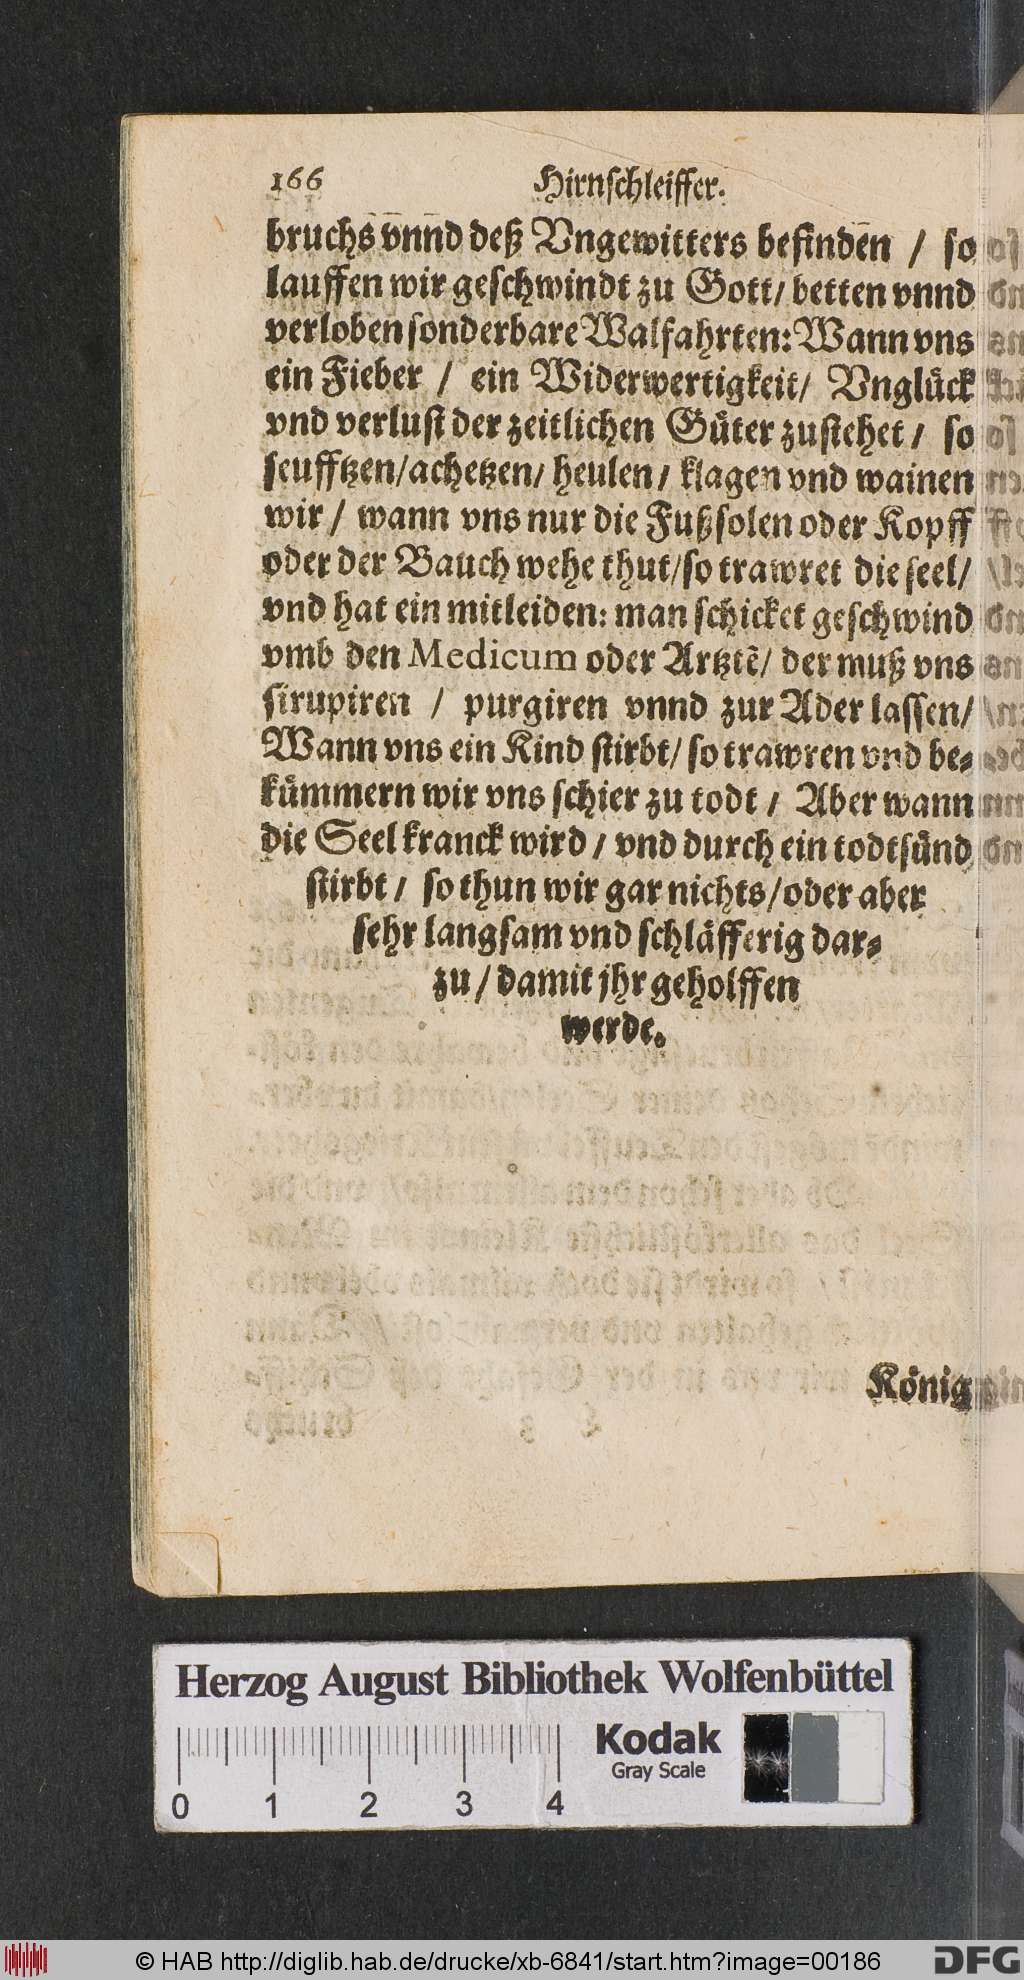 166 Hirnschleiffer.
bruchs vnnd deß Vngewitters befinden / so
lauffen wir geschwindt zu Gott / betten vnnd
verloben sonderbare Walfahrten: Wann vns
ein Fieber / ein Widerwertigkeit / Vnglück
vnd verlust der zeitlichen Güter zustehet / so
seufftzen / achetzen / heulen / klagen vnd wainen
wir / wann vns nur die Fußsolen oder Kopff
oder der Bauch wehe thut / so trawret die seel /
vnd hat ein mitleiden: man schicket geschwind
vmb den Medicum oder Artztē / der muß vns
sirupiren / purgiren vnnd zur Ader lassen /
Wann vns ein Kind stirbt / so trawren vnd be-
kümmern wir vns schier zu todt / Aber wann
die Seel kranck wird / vnd durch ein todtsünd
stirbt / so thun wir gar nichts / oder aber
sehr langsam vnd schläfferig dar-
zu / damit jhr geholffen
werde.
König
Herzog August Bibliothek Wolfenbüttel
Kodak
Gray Scale
0 1 2 3 4
© HAB http://diglib.hab.de/drucke/xb-6841/start.htm?image=00186
DFG